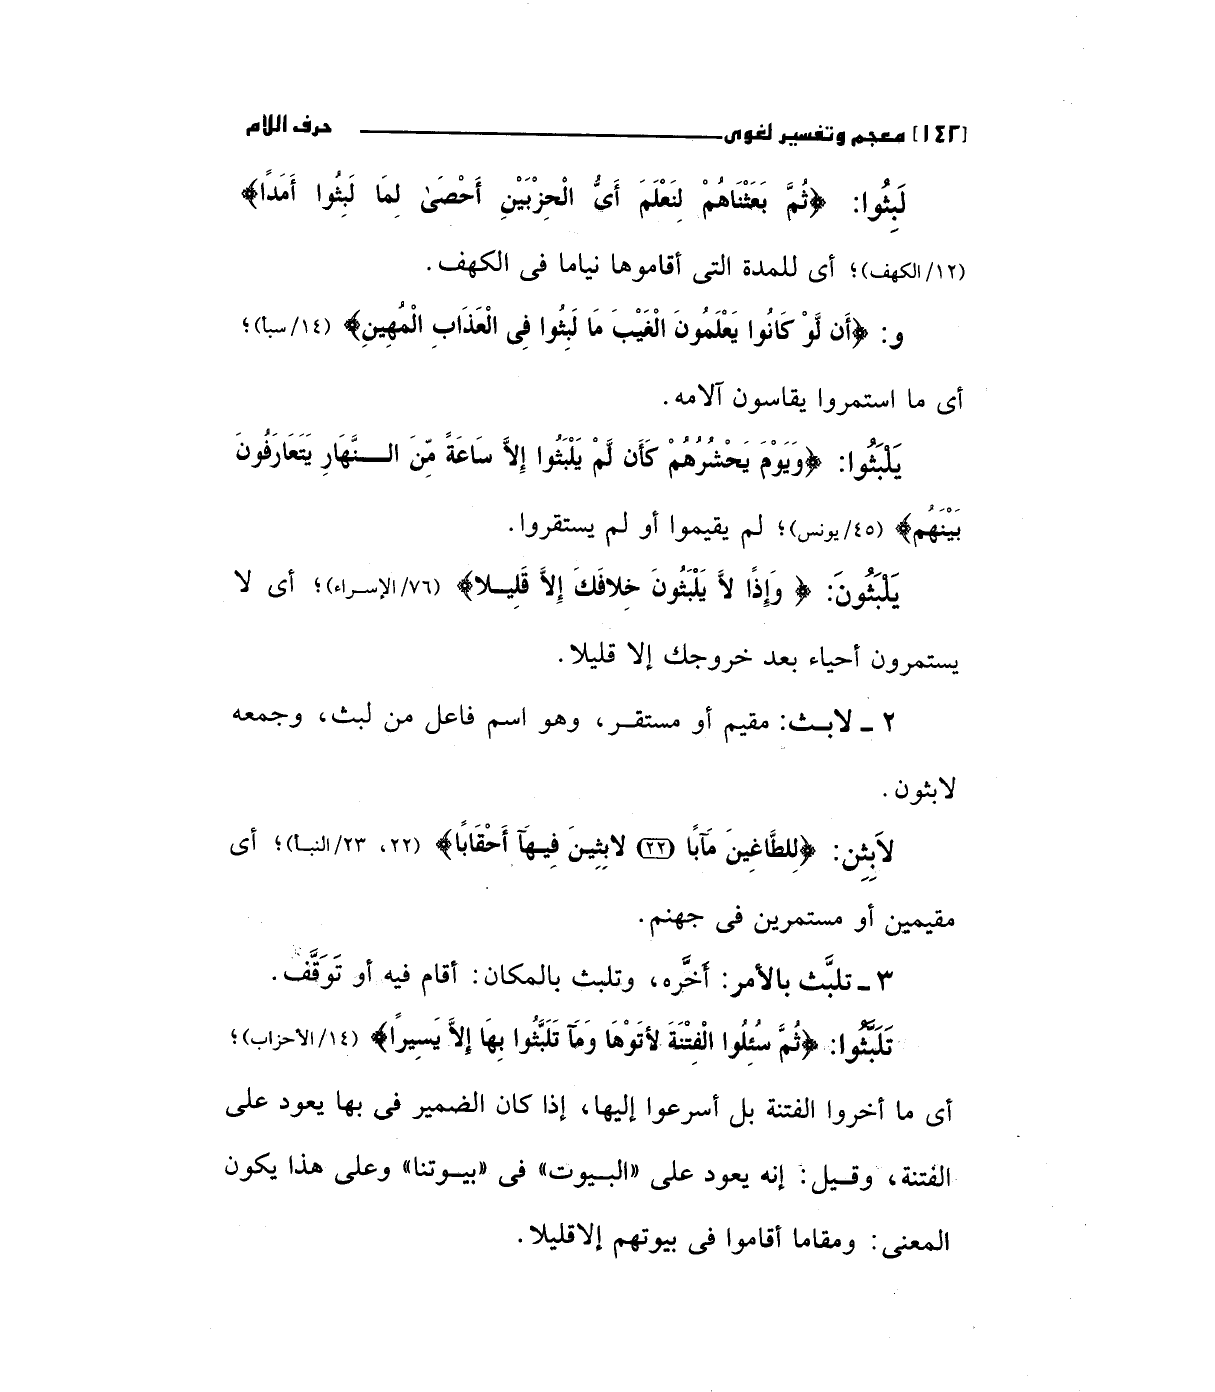 [١٤٢] معجم وتفسير لغوى — حرف اللام
لَبِثُوا: ﴿ثُمَّ بَعَثْنَاهُمْ لِنَعْلَمَ أَىُّ الْحِزْبَيْنِ أَحْصَىٰ لِمَا لَبِثُوا أَمَدًا﴾
(١٢/الكهف)؛ أى للمدة التى أقاموها نياما فى الكهف.
و: ﴿أَن لَّوْ كَانُوا يَعْلَمُونَ الْغَيْبَ مَا لَبِثُوا فِى الْعَذَابِ الْمُهِينِ﴾ (١٤/سبأ)؛
أى ما استمروا يقاسون آلامه.
يَلْبَثُوا: ﴿وَيَوْمَ يَحْشُرُهُمْ كَأَن لَّمْ يَلْبَثُوا إِلاَّ سَاعَةً مِّنَ النَّهَارِ يَتَعَارَفُونَ
بَيْنَهُم﴾ (٤٥/يونس)؛ لم يقيموا أو لم يستقروا.
يَلْبَثُونَ: ﴿ وَإِذًا لاَّ يَلْبَثُونَ خِلافَكَ إِلاَّ قَلِيلا﴾ (٧٦/الإسراء)؛ أى لا
يستمرون أحياء بعد خروجك إلا قليلا.
٢ ـ لابث: مقيم أو مستقر، وهو اسم فاعل من لبث، وجمعه
لابثون.
لاَبِثِن: ﴿لِلطَّاغِينَ مَآبًا (٢٢) لابِثِينَ فِيهَآ أَحْقَابًا﴾ (٢٢، ٢٣/النبأ)؛ أى
مقيمين أو مستمرين فى جهنم.
٣ ـ تلبَّث بالأمر: أَخَّره، وتلبث بالمكان: أقام فيه أو تَوَقَّف.
تَلَبَّثُوا: ﴿ثُمَّ سُئِلُوا الْفِتْنَةَ لأتَوْهَا وَمَآ تَلَبَّثُوا بِهَا إِلاَّ يَسِيرًا﴾ (١٤/الأحزاب)؛
أى ما أخروا الفتنة بل أسرعوا إليها، إذا كان الضمير فى بها يعود على
الفتنة، وقيل: إنه يعود على «البيوت» فى «بيوتنا» وعلى هذا يكون
المعنى: ومقاما أقاموا فى بيوتهم إلاقليلا.